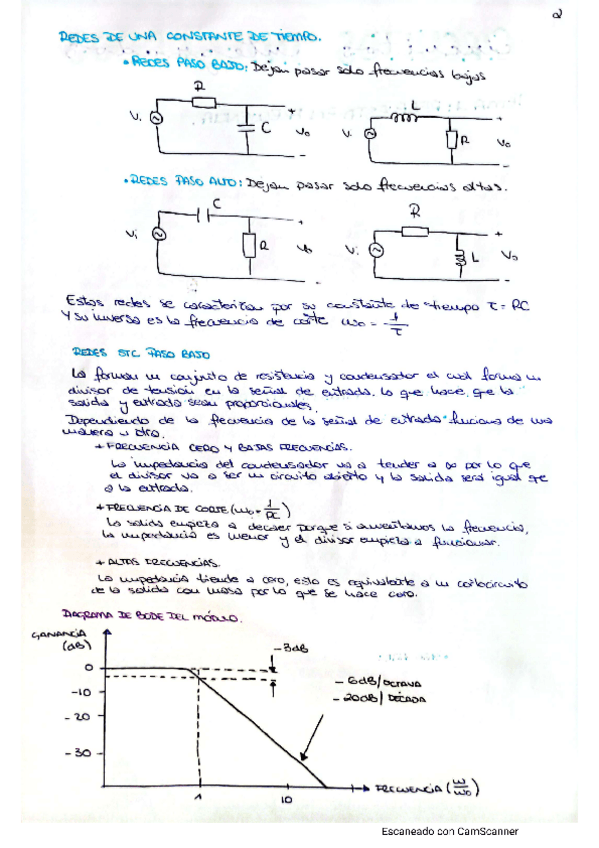 2
REDES DE UNA CONSTANTE DE TIEMPO.
• REDES PASO BAJO: Dejan pasar solo frecuencias bajas
R
L
+
+
Vi
C
Vo
Vi
R
Vo
-
-
• REDES PASO ALTO: Dejan pasar solo frecuencias altas.
C
R
+
+
Vi
R
Vo
Vi
L
Vo
-
-
Estas redes se caracterizan por su constante de tiempo τ = RC
Y su inverso es la frecuencia de corte ω₀ = 1/τ
REDES STC PASO BAJO
La forman un conjunto de resistencia y condensador el cual forma un
divisor de tensión en la señal de entrada, lo que hace, que la
salida y entrada sean proporcionales.
Dependiendo de la frecuencia de la señal de entrada funciona de una
manera u otra.
+ FRECUENCIA CERO Y BAJAS FRECUENCIAS.
La impedancia del condensador va a tender a ∞ por lo que
el divisor va a ser un circuito abierto y la salida será igual que
a la entrada.
+ FRECUENCIA DE CORTE (ω₀ = 1/RC)
La salida empieza a decaer porque si aumentamos la frecuencia,
la impedancia es menor y el divisor empieza a funcionar.
+ ALTAS FRECUENCIAS.
La impedancia tiende a cero, esto es equivalente a un cortocircuito
de la salida con masa por lo que se hace cero.
DIAGRAMA DE BODE DEL MÓDULO.
GANANCIA
(dB)
-3dB
0
-10
-20
-30
- 6dB/OCTAVA
- 20dB/DÉCADA
FRECUENCIA (ω/ω₀)
1
10
Escaneado con CamScanner